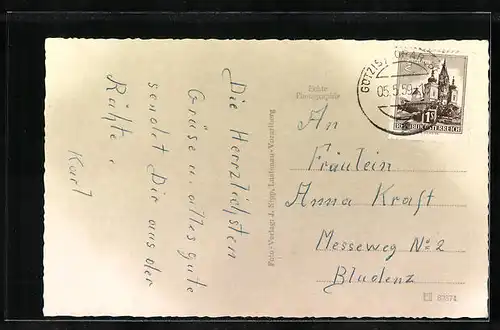 Die Herzlichsten
Grüse u. alles gute
sendet Dir aus der
Karl
Echte
Photographie
Foto-Verlag: J. Nipp, Lustenau-Vorarlberg
GÖTZIS
05.5.59
1S
REPUBLIK ÖSTERREICH
An
Fräulein
Anna Kraft
Messeweg No 2
Bludenz